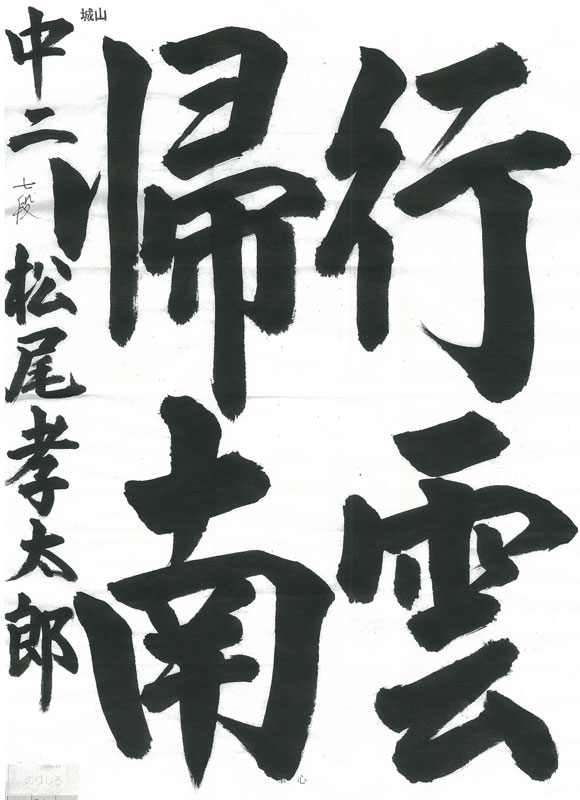 行雲
帰南
中二
七段
松尾孝太郎
城山
のりしろ
心